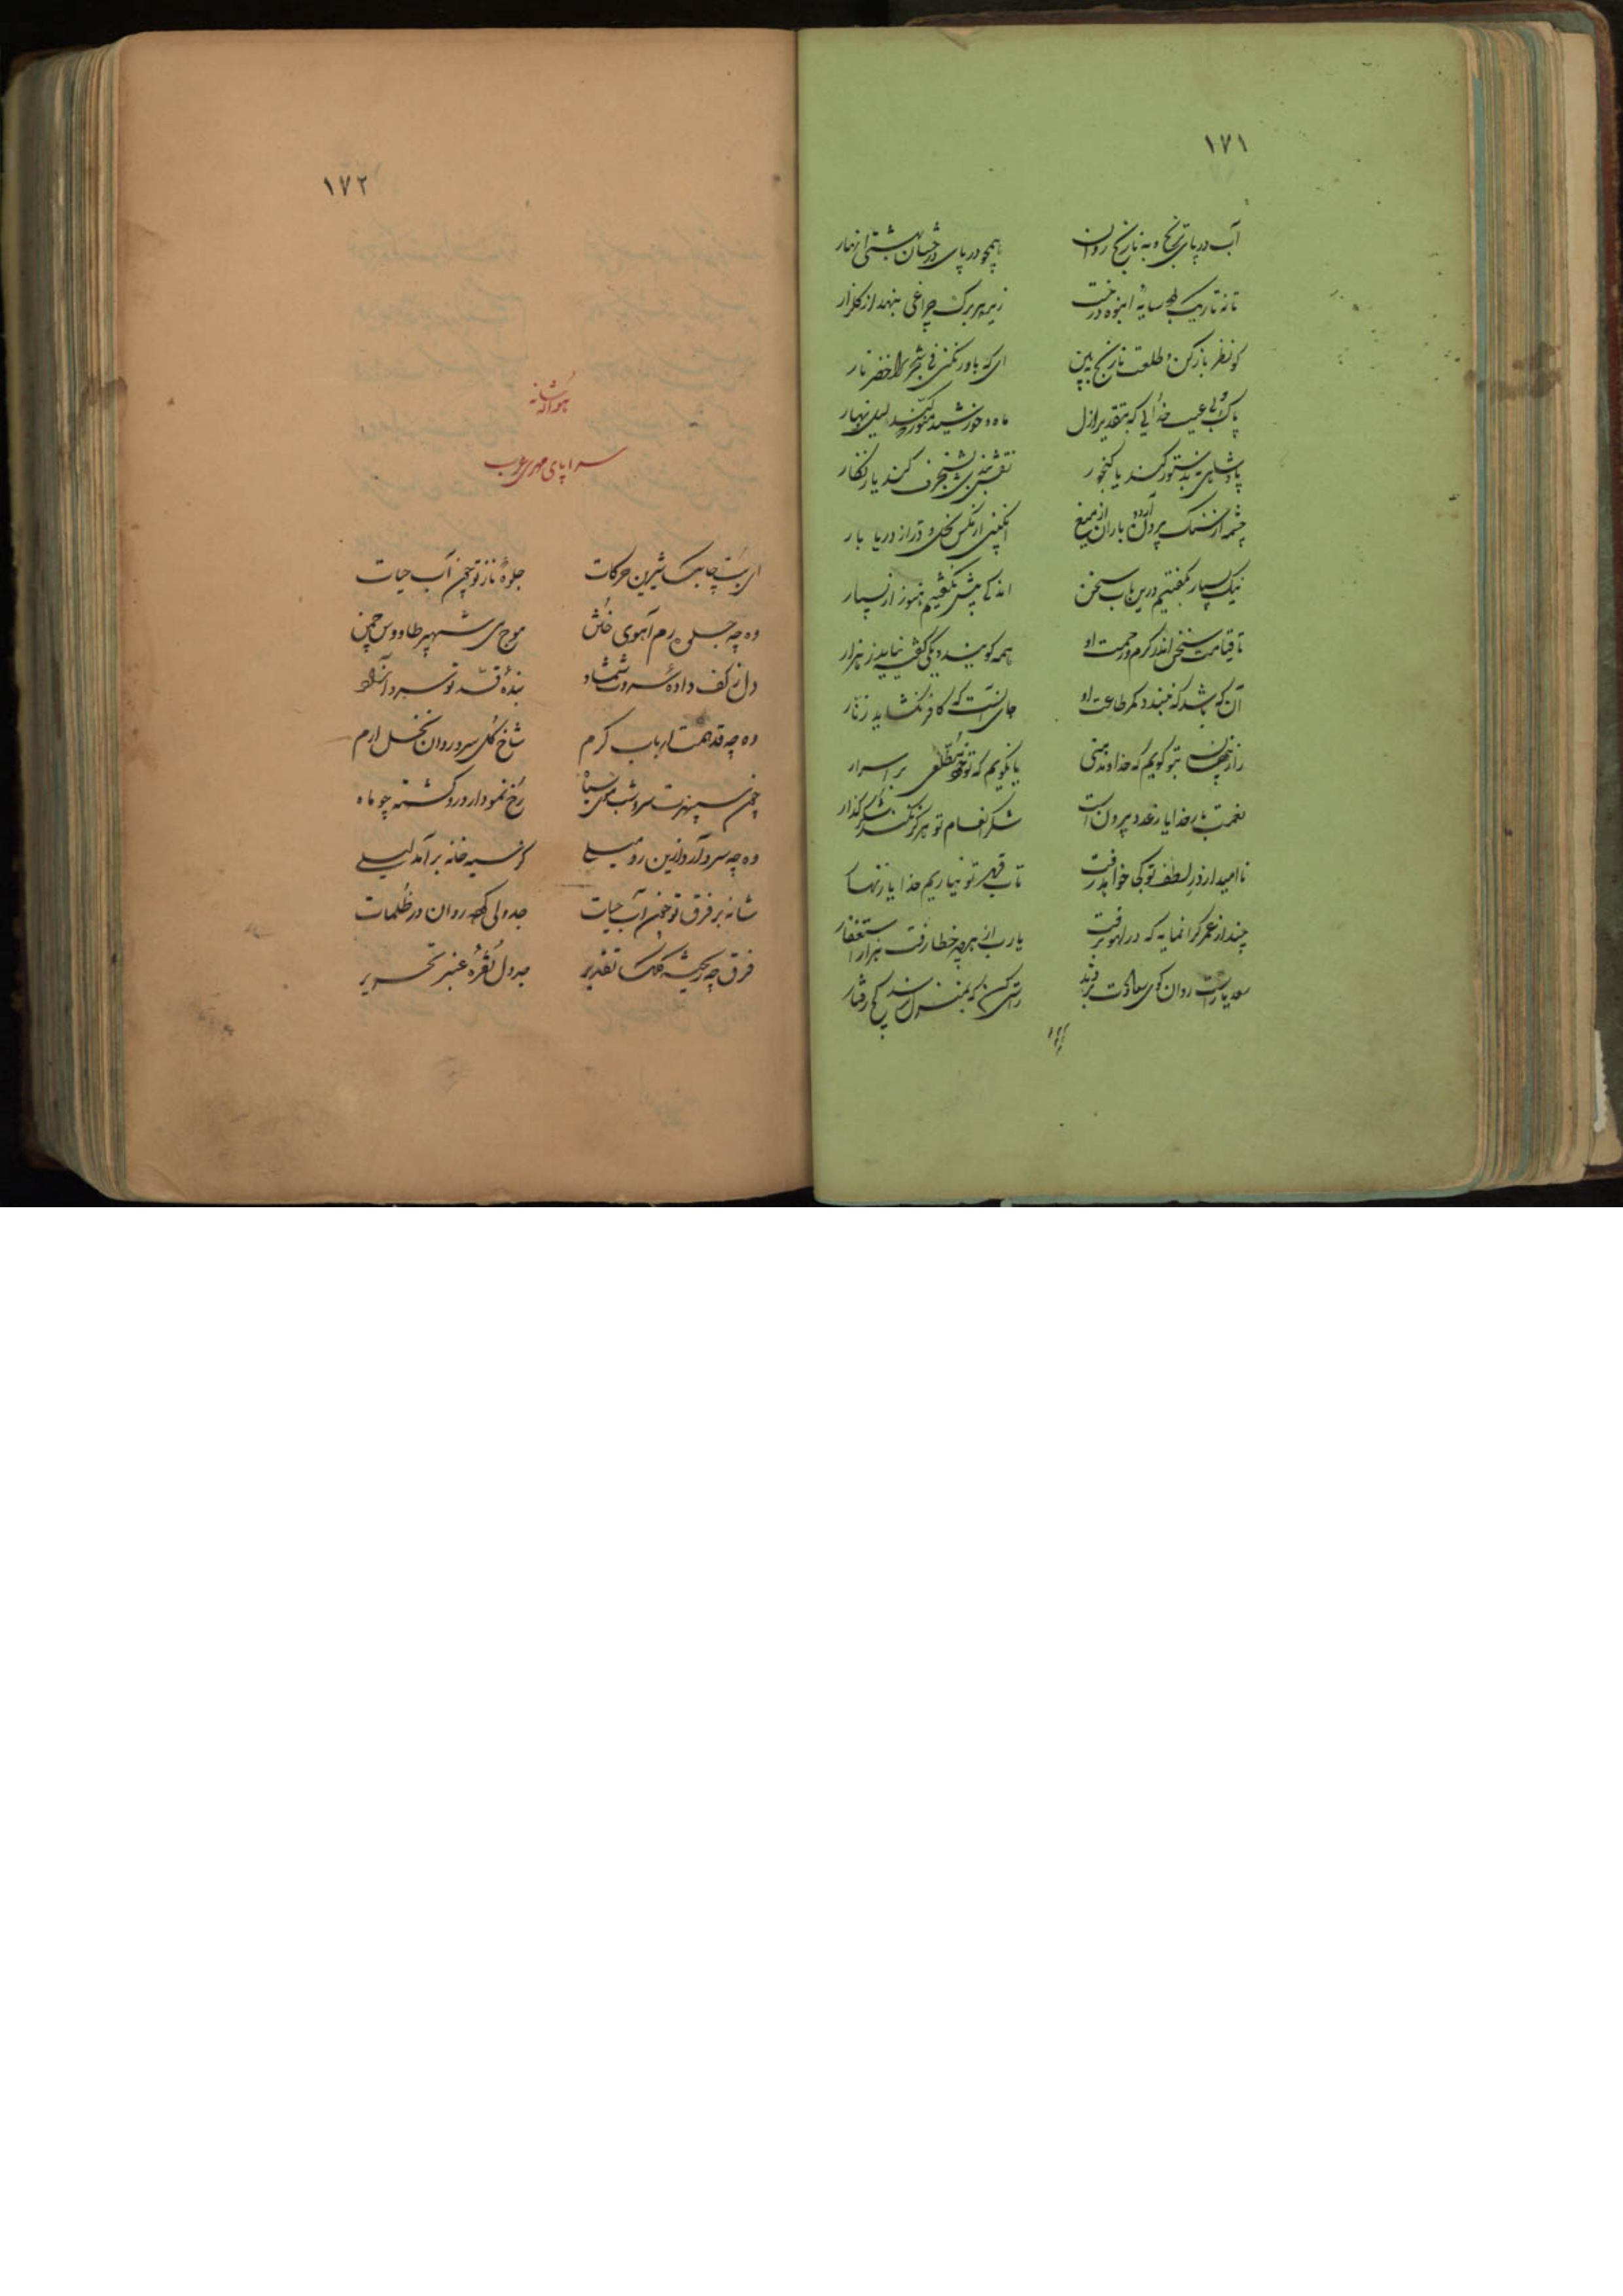 ۱۷۱
آب در پای ترنج و به و نارنج روان
همچو در پای درختان بهشتی انهار
تا نه تاریک بود سایه انبوه درخت
زیر هر برگ چراغی بنهد از گلنار
گو نظر بازکن و طلعت نارنج ببین
ای که باور نکنی فی الشجر الاخضر نار
پاک و بی عیب خدایی که بتقدیر ازل
ماه و خورشید منور کند لیل و نهار
پادشاهی نه بدستور کند یا گنجور
نقشبندی نه بشنجرف کند یا زنگار
چشمه از سنگ برون آرد و باران از میغ
انگبین از مگس نحل و در از دریا بار
نیک بسیار بگفتیم درین باب سخن
اندکی بیش نگفتیم هنوز از بسیار
تا قیامت سخن اندر کرم و رحمت او
همه گویند و یکی گفته نیاید ز هزار
آن که باشد که نبندد کمر طاعت او
جای آنست که کافر نگشاید زنار
راز پنهان بتو گویم که خداوند منی
یا نگویم که تو خود مطلعی بر اسرار
نعمتت بار خدایا ز عدد بیرون است
شکر انعام تو هرگز نکند شکرگذار
ناامید از در لطف تو کجا خواهد رفت
تاب قهر تو نیاریم خدایا زنهار
چند از عمر گرانمایه که در لهو برفت
یارب از هرچه خطا رفت هزار استغفار
سعدیا راست روان گوی سعادت بردند
راستی کن که بمنزل نرسد کج رفتار
۱۷۲
هو الله شانه
سراپای مهری عرب
ای بت چابک شیرین حرکات
جلوهٔ ناز تو چون آب حیات
وه چه جلوه رم آهوی ختن
موج می شهپر طاووس چمن
دل ز کف دادهٔ سروت شمشاد
بندهٔ قد تو سرو آزاد
وه چه قد همت ارباب کرم
شاخ گل سرو روان نخل ارم
چون سپهرت سر و شب موی سیاه
رخ نمودار درو گشته چو ماه
وه چه سر دارد ازین رو میلی
کز سیه خانه برآمد لیلی
شانه بر فرق تو چون آب حیات
جدولی کرده روان در ظلمات
فرق چه ریخته کلک تقدیر
جدول نقره عنبر تحریر